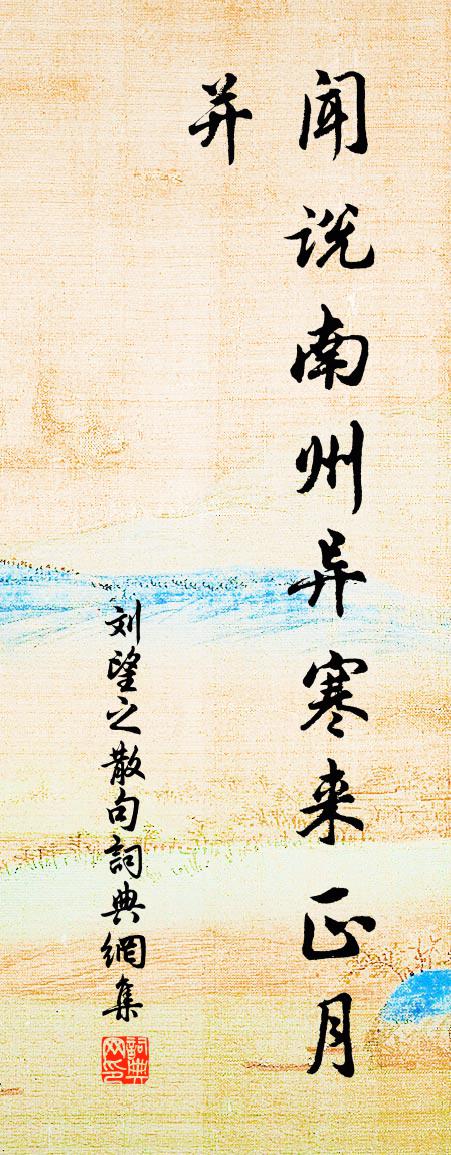 闻说南州异寒来正月
并
刘望之散句詞典網集
詞典网印